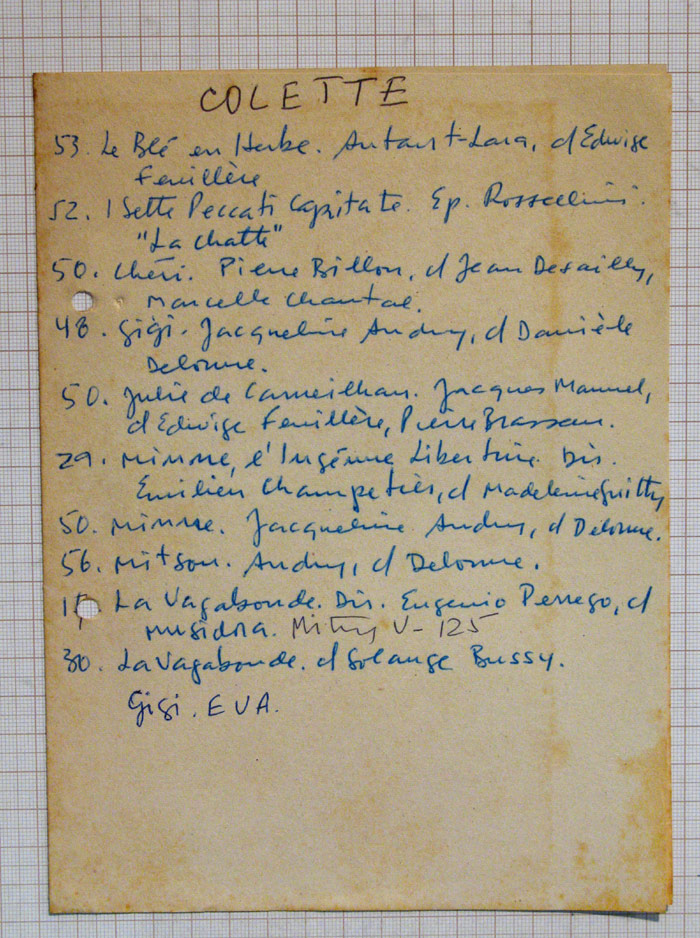 COLETTE
53. Le Blé en Herbe. Autant-Lara, c/ Edwige
Feuillère
52. I Sette Peccati Capitate. Ep. Rossellini.
"La Chatte"
50. Chéri. Pierre Billon, c/ Jean Desailly,
Marcelle Chantal.
48. Gigi. Jacqueline Audry, c/ Danièle
Delorme.
50. Julie de Carneilhan. Jacques Manuel,
c/ Edwige Feuillère, Pierre Brasseur.
29. Minne, l'Ingénue Libertine Dir.
Emilien Champetier, c/ Madeleine Guitty
50. Minne. Jacqueline Audry, c/ Delorme.
56. Mitsou. Audry, c/ Delorme.
La Vagabonde. Dir. Eugenio Perrego, c/
Musidora. Mitry V-125
30. La Vagabonde. c/ Solange Bussy.
Gigi. EVA.